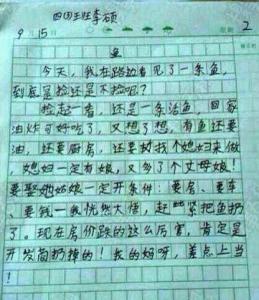 四四王班李硕
9月15日 星期 2
鱼
今天，我在路边看见了一条鱼，
到底是捡还是不捡呢？
捡起一看，还是一条活鱼，回家
油炸可好吃了，又想了想，有鱼还要
油，还要厨房，还要找个媳妇来做
，媳妇一定有娘，又多了个丈母娘！
要娶她姑娘一定开条件：要房、要车
、要钱一我恍然大悟，赶紧把鱼扔
了。现在房价跌的这么厉害，肯定是
开发商扔掉的！我的妈呀，差点上当
！